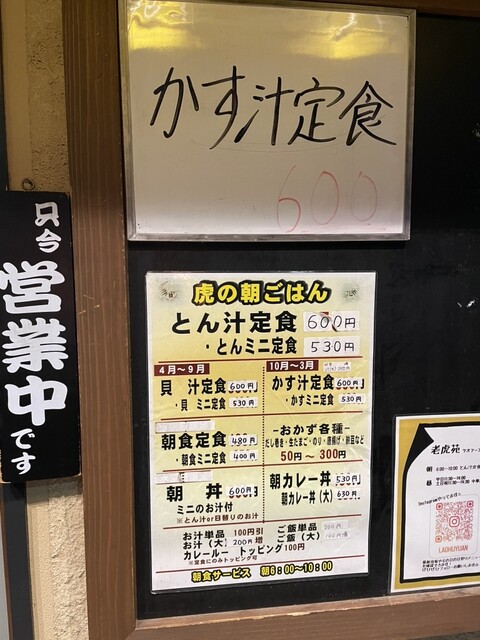 かす汁定食
600
只今
営業中
です
虎の朝ごはん
とん汁定食 600円
・とんミニ定食 530円
4月〜9月
貝 汁定食 600円
・貝 ミニ定食 530円
10月〜3月
かす汁定食 600円
・かすミニ定食 530円
朝食定食 480円
・朝食ミニ定食 400円
−おかず各種−
だし巻き・生たまご・のり・唐揚げ・納豆など
50円〜300円
朝 丼 600円
ミニのお汁付
※とん汁or日替りのお汁
朝カレー丼 530円
朝カレー丼(大) 630円
お汁単品 100円引
お汁(大) 200円増
ご飯単品
ご飯(大)
カレールー トッピング100円
※定食にのみトッピング可
朝食サービス 朝6:00〜10:00
老虎苑
朝 6:00〜10:00
昼
Instagramやってます!
LAOHUYUAN